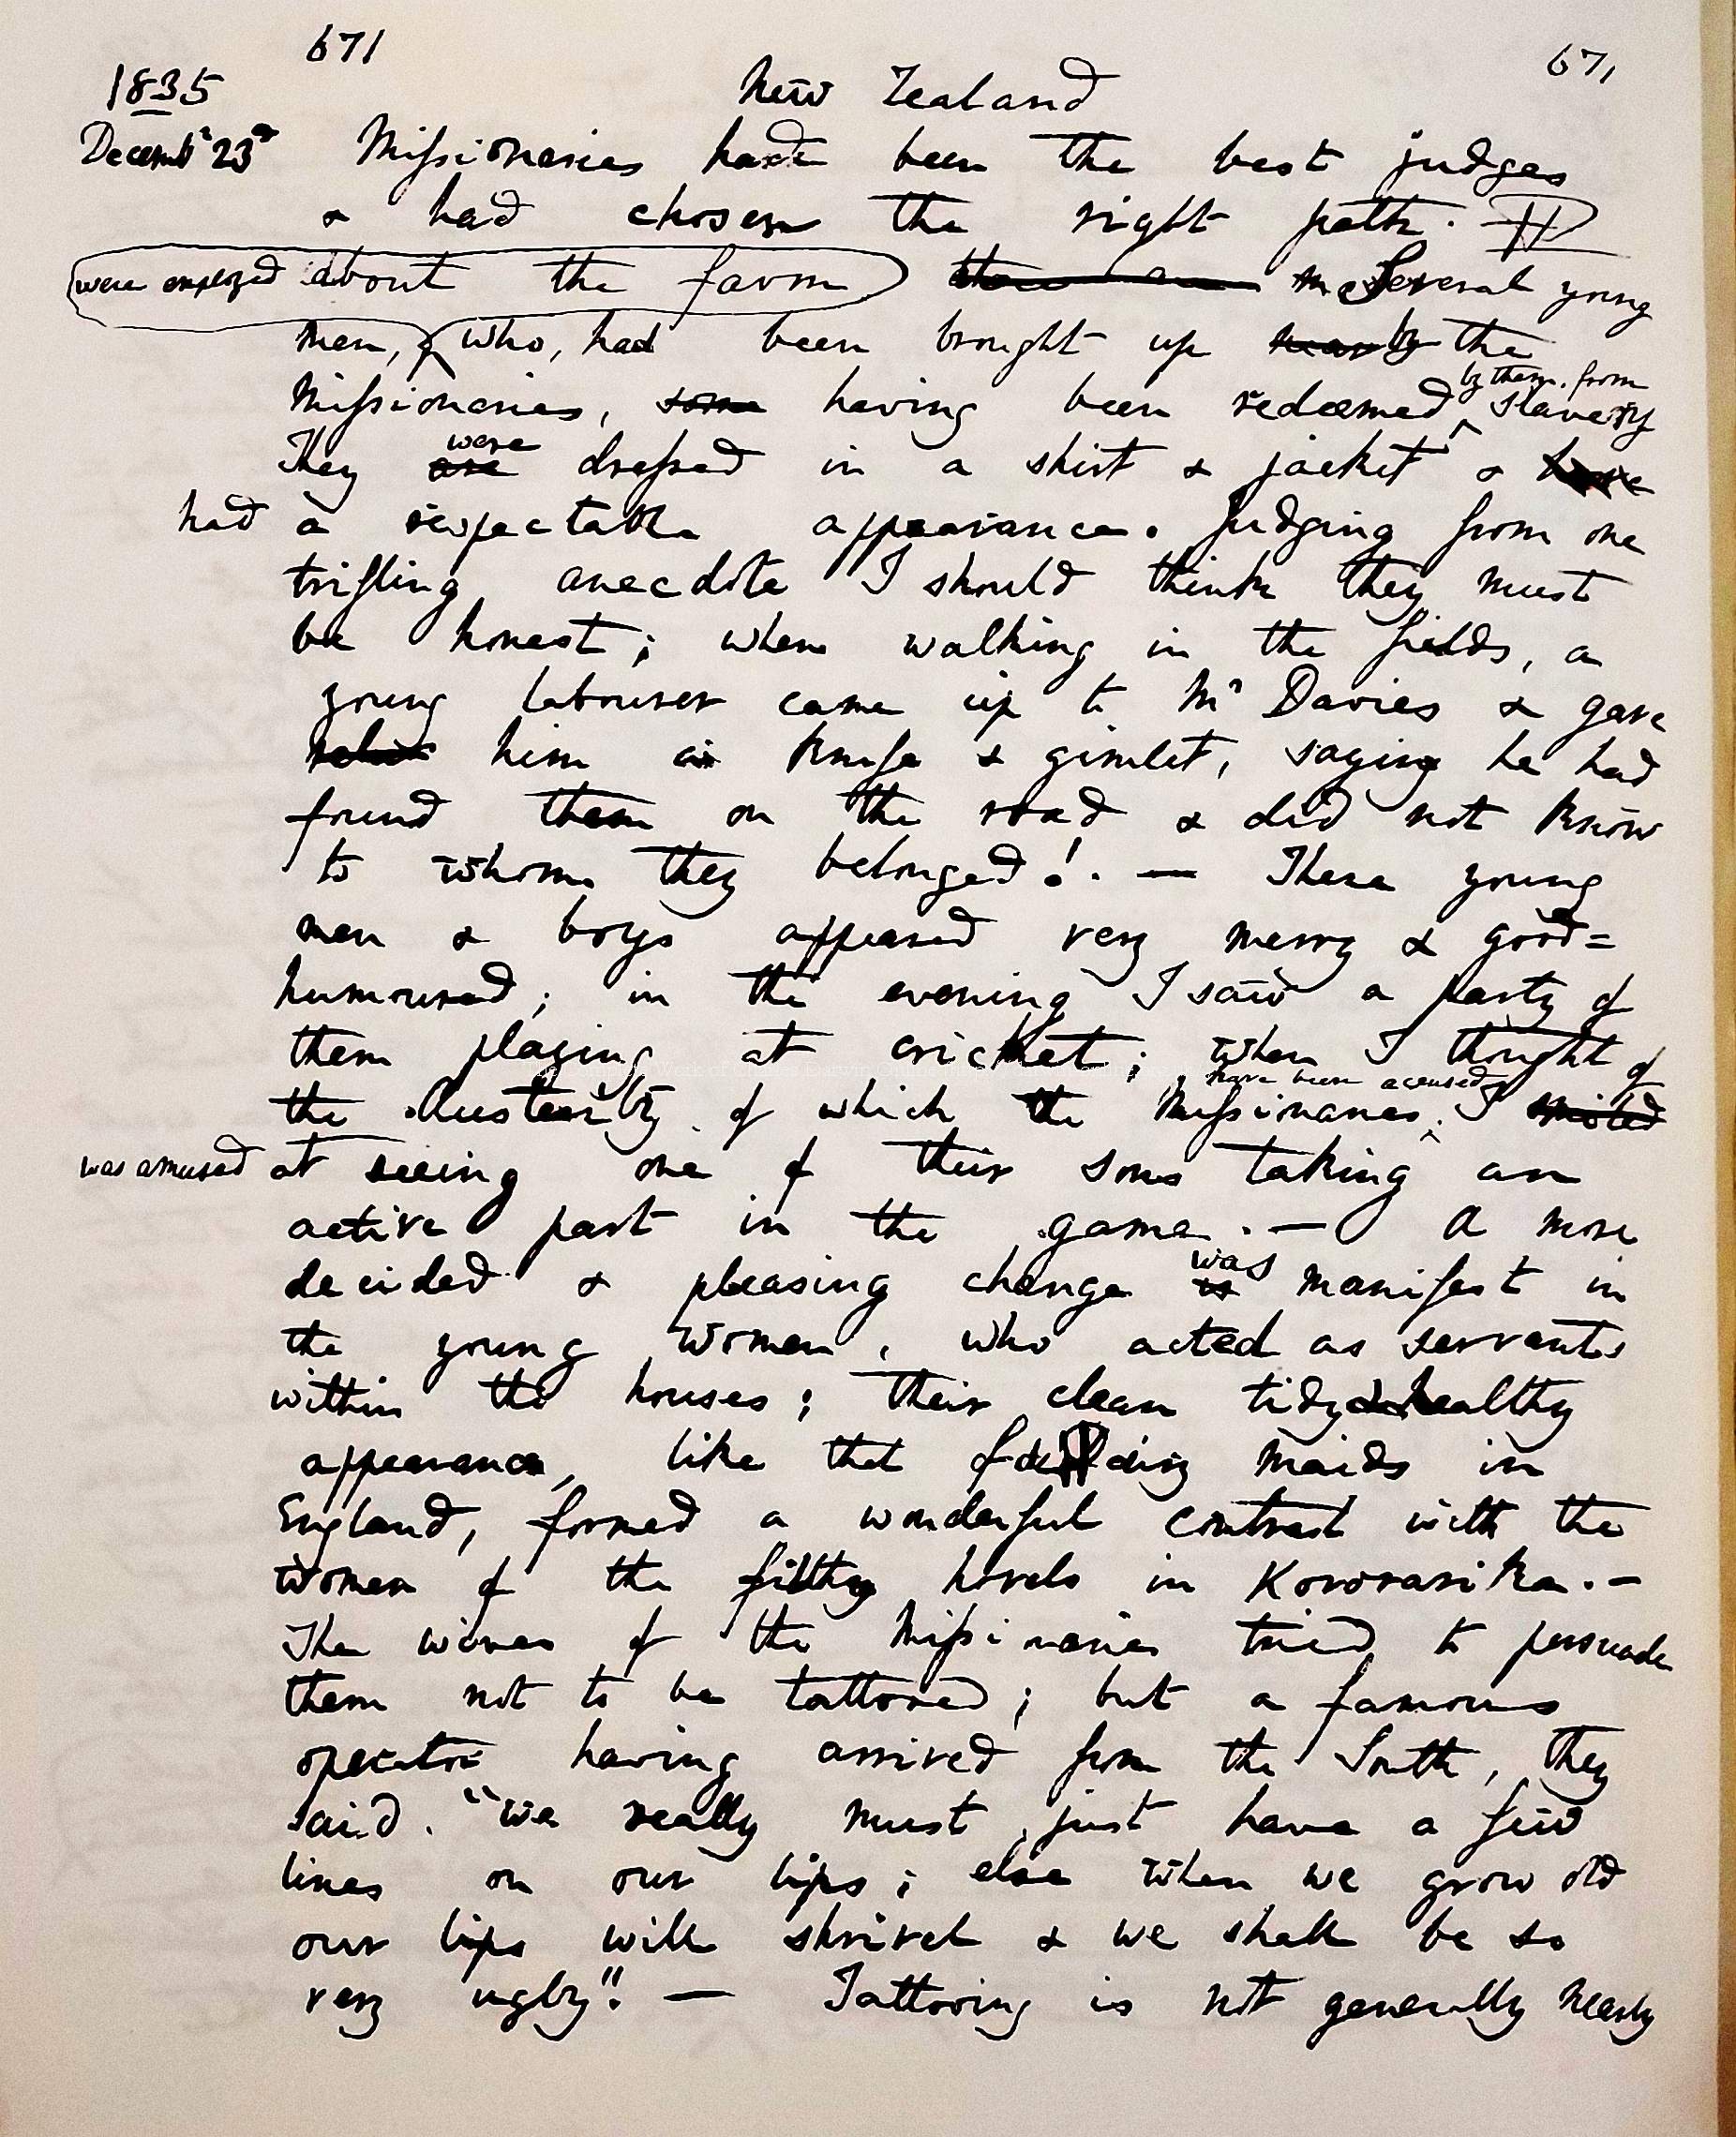 671 671
1835 New Zealand
Decembr 23d Missionaries had been the best judges
& had chosen the right path.
were employed about the farm Several young
men, & who, had been brought up by the
by them, from
Missionaries, some having been redeemed slavery
were
They are dressed in a shirt & jacket & have
had a respectable appearance. Judging from one
trifling anecdote I should think they must
be honest; when walking in the fields, a
young labourer came up to Mr Davies & gave
him a knife & gimlet, saying he had
found them on the road & did not know
to whom they belonged! . — These young
men & boys appeared very merry & good=
humoured; in the evening I saw a party of
them playing at cricket; when I thought of
have been accused
the Austerity of which the Missionaries, I smiled
was amused at seeing one of their sons taking an
active part in the game. — A more
was
decided & pleasing change is manifest in
the young women, who acted as servants
within the houses; their clean tidy & healthy
appearance, like that of dairy maids in
England, formed a wonderful contrast with the
women of the filthy hovels in Kororarika. —
The wives of the Missionaries tried to persuade
them not to be tattooed; but a famous
operator having arrived from the South, they
said. "we really must just have a few
lines on our lips; else when we grow old
our lips will shrivel & we shall be so
very ugly". — Tattooing is not generally nearly